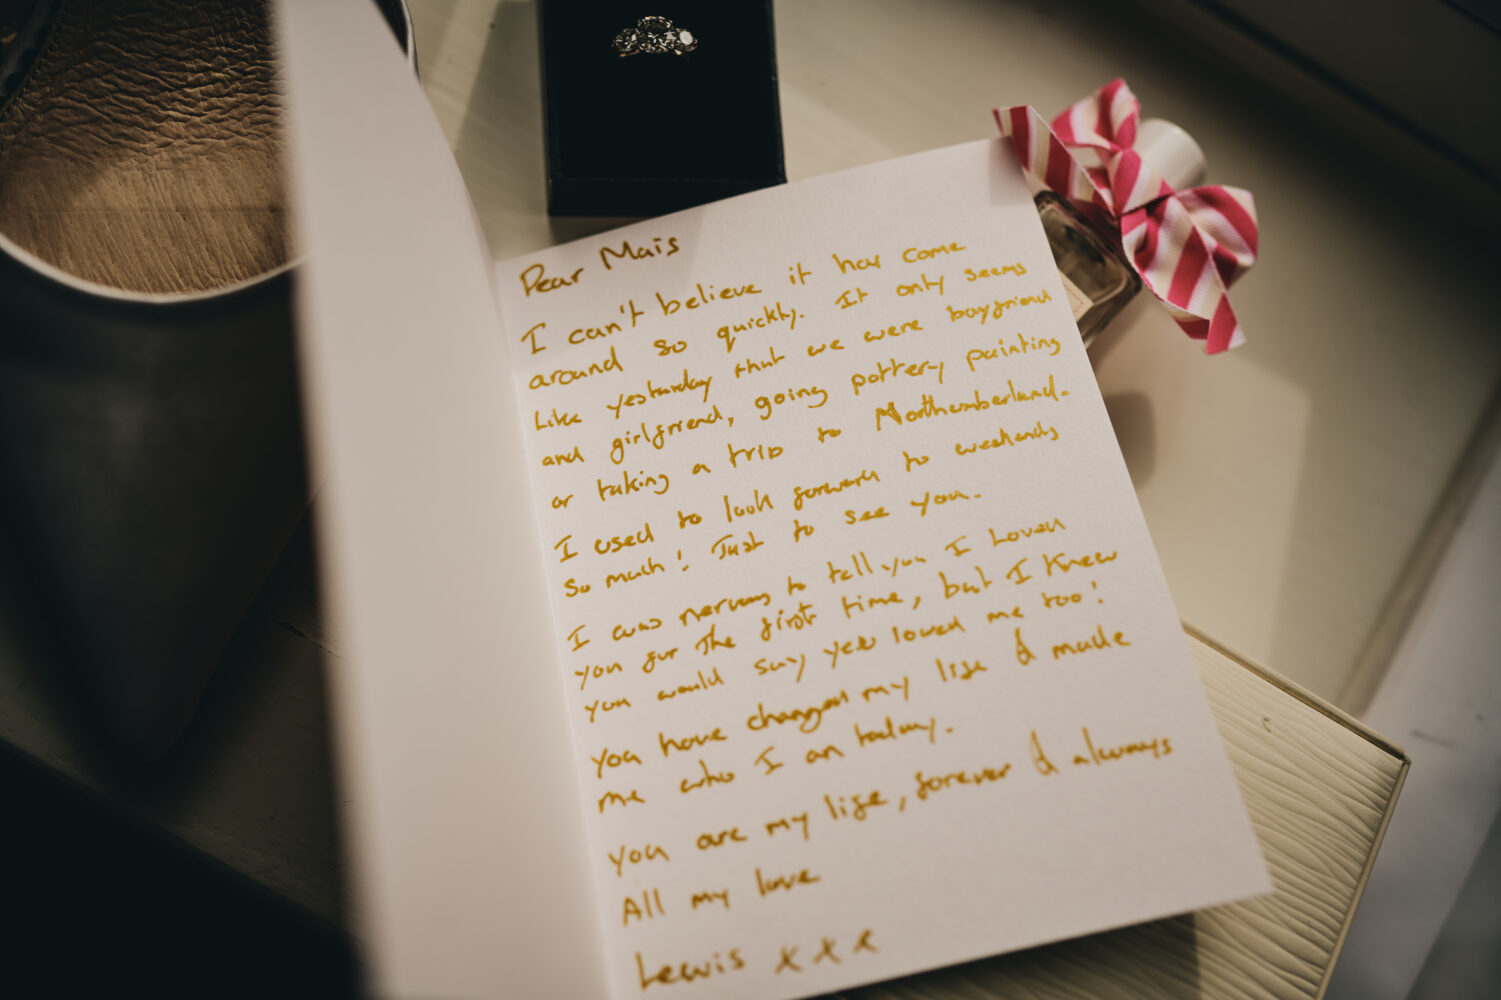 Dear Mais
I can't believe it has come
around so quickly. It only seems
like yesterday that we were boyfriend
and girlfriend, going pottery painting
or taking a trip to Northumberland.
I used to look forward to weekends
so much! Just to see you.
I was nervous to tell you I loved
you for the first time, but I knew
you would say you loved me too!
You have changed my life & made
me who I am today.
You are my life, forever & always
All my love
Lewis x x x